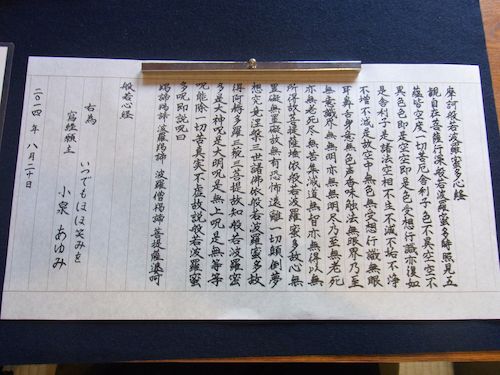 摩訶般若波羅蜜多心経
観自在菩薩行深般若波羅蜜多時照見五
蘊皆空度一切苦厄舎利子色不異空空不
異色色即是空空即是色受想行識亦復如
是舎利子是諸法空相不生不滅不垢不浄
不増不減是故空中無色無受想行識無眼
耳鼻舌身意無色声香味触法無眼界乃至
無意識界無無明亦無無明尽乃至無老死
亦無老死尽無苦集滅道無智亦無得以無
所得故菩提薩埵依般若波羅蜜多故心無
罣礙無罣礙故無有恐怖遠離一切顛倒夢
想究竟涅槃三世諸佛依般若波羅蜜多故
得阿耨多羅三藐三菩提故知般若波羅蜜
多是大神呪是大明呪是無上呪是無等等
呪能除一切苦真実不虚故説般若波羅蜜
多呪即説呪曰
羯諦羯諦 波羅羯諦 波羅僧羯諦 菩提薩婆訶
般若心経
右為 いつでもほほ笑みを
寫経願主 小泉 あゆみ
二〇一四年 八月二十日